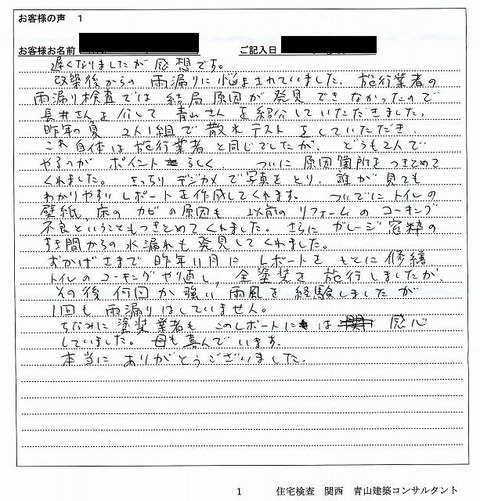 お客様の声 1
お客様お名前 ご記入日
遅くなりましたが感想です。
改築後からの雨漏りに悩まされていました。施行業者の
雨漏り検査では結局原因が発見できなかったので
長井さんを介して青山さんを紹介していただきました。
昨年の夏 2人1組で散水テストをしていただき、
これ自体は施行業者と同じでしたが、どうも2人で
やるのがポイントらしく ついに原因箇所をつきとめて
くれました。きっちりデジカメで写真をとり、誰が見ても
わかりやすいレポートを作成してくれます。ついでにトイレの
壁紙、床のカビの原因も以前のリフォームのコーキング
不良ということもつきとめてくれました。さらにガレージ窓枠の
すき間からの水漏れも発見してくれました。
おかげさまで昨年11月にレポートをもとに修繕
トイレのコーキングやり直し、全塗装を施行しましたが、
その後何回か強い雨風を経験しましたが
1回も雨漏りはしていません。
ちなみに塗装業者もこのレポートには感心
していました。母も喜んでいます。
本当にありがとうございました。
1 住宅検査 関西 青山建築コンサルタント